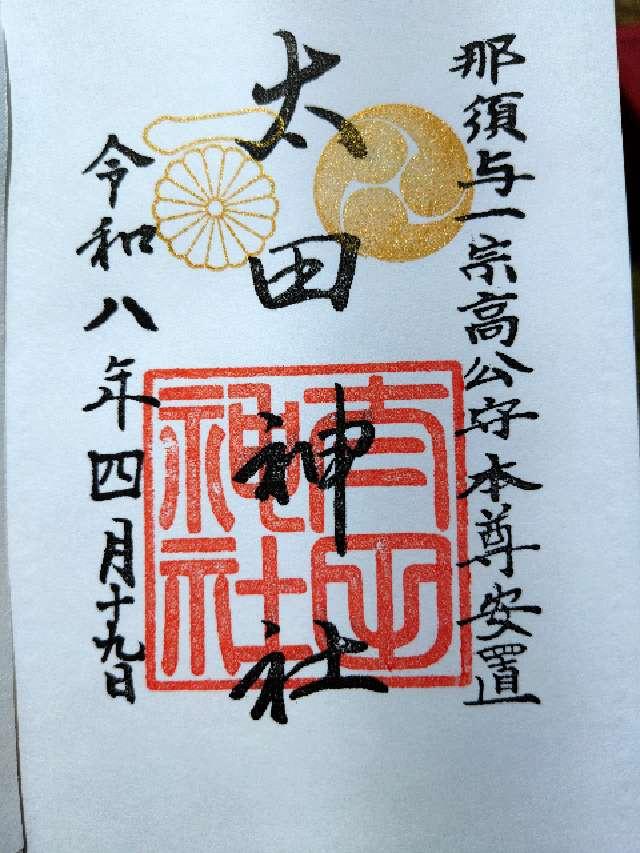 那須与一宗高公守本尊安置
太田神社
令和八年四月十九日
神社